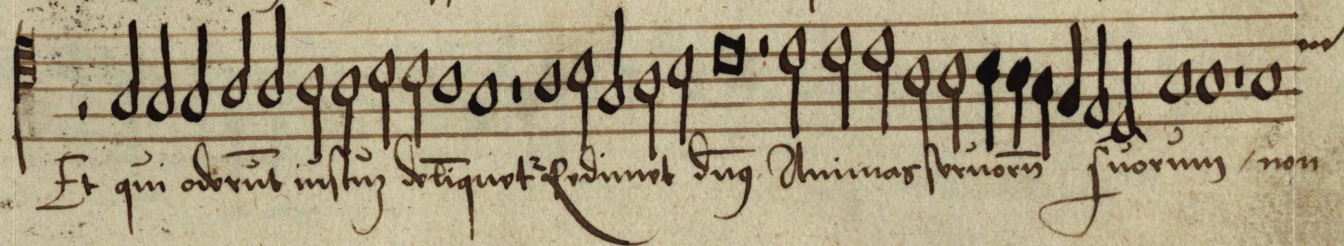 Et qui oderūt iustuʒ delīquet Redimet dn̄s Animas seruorū suorum non